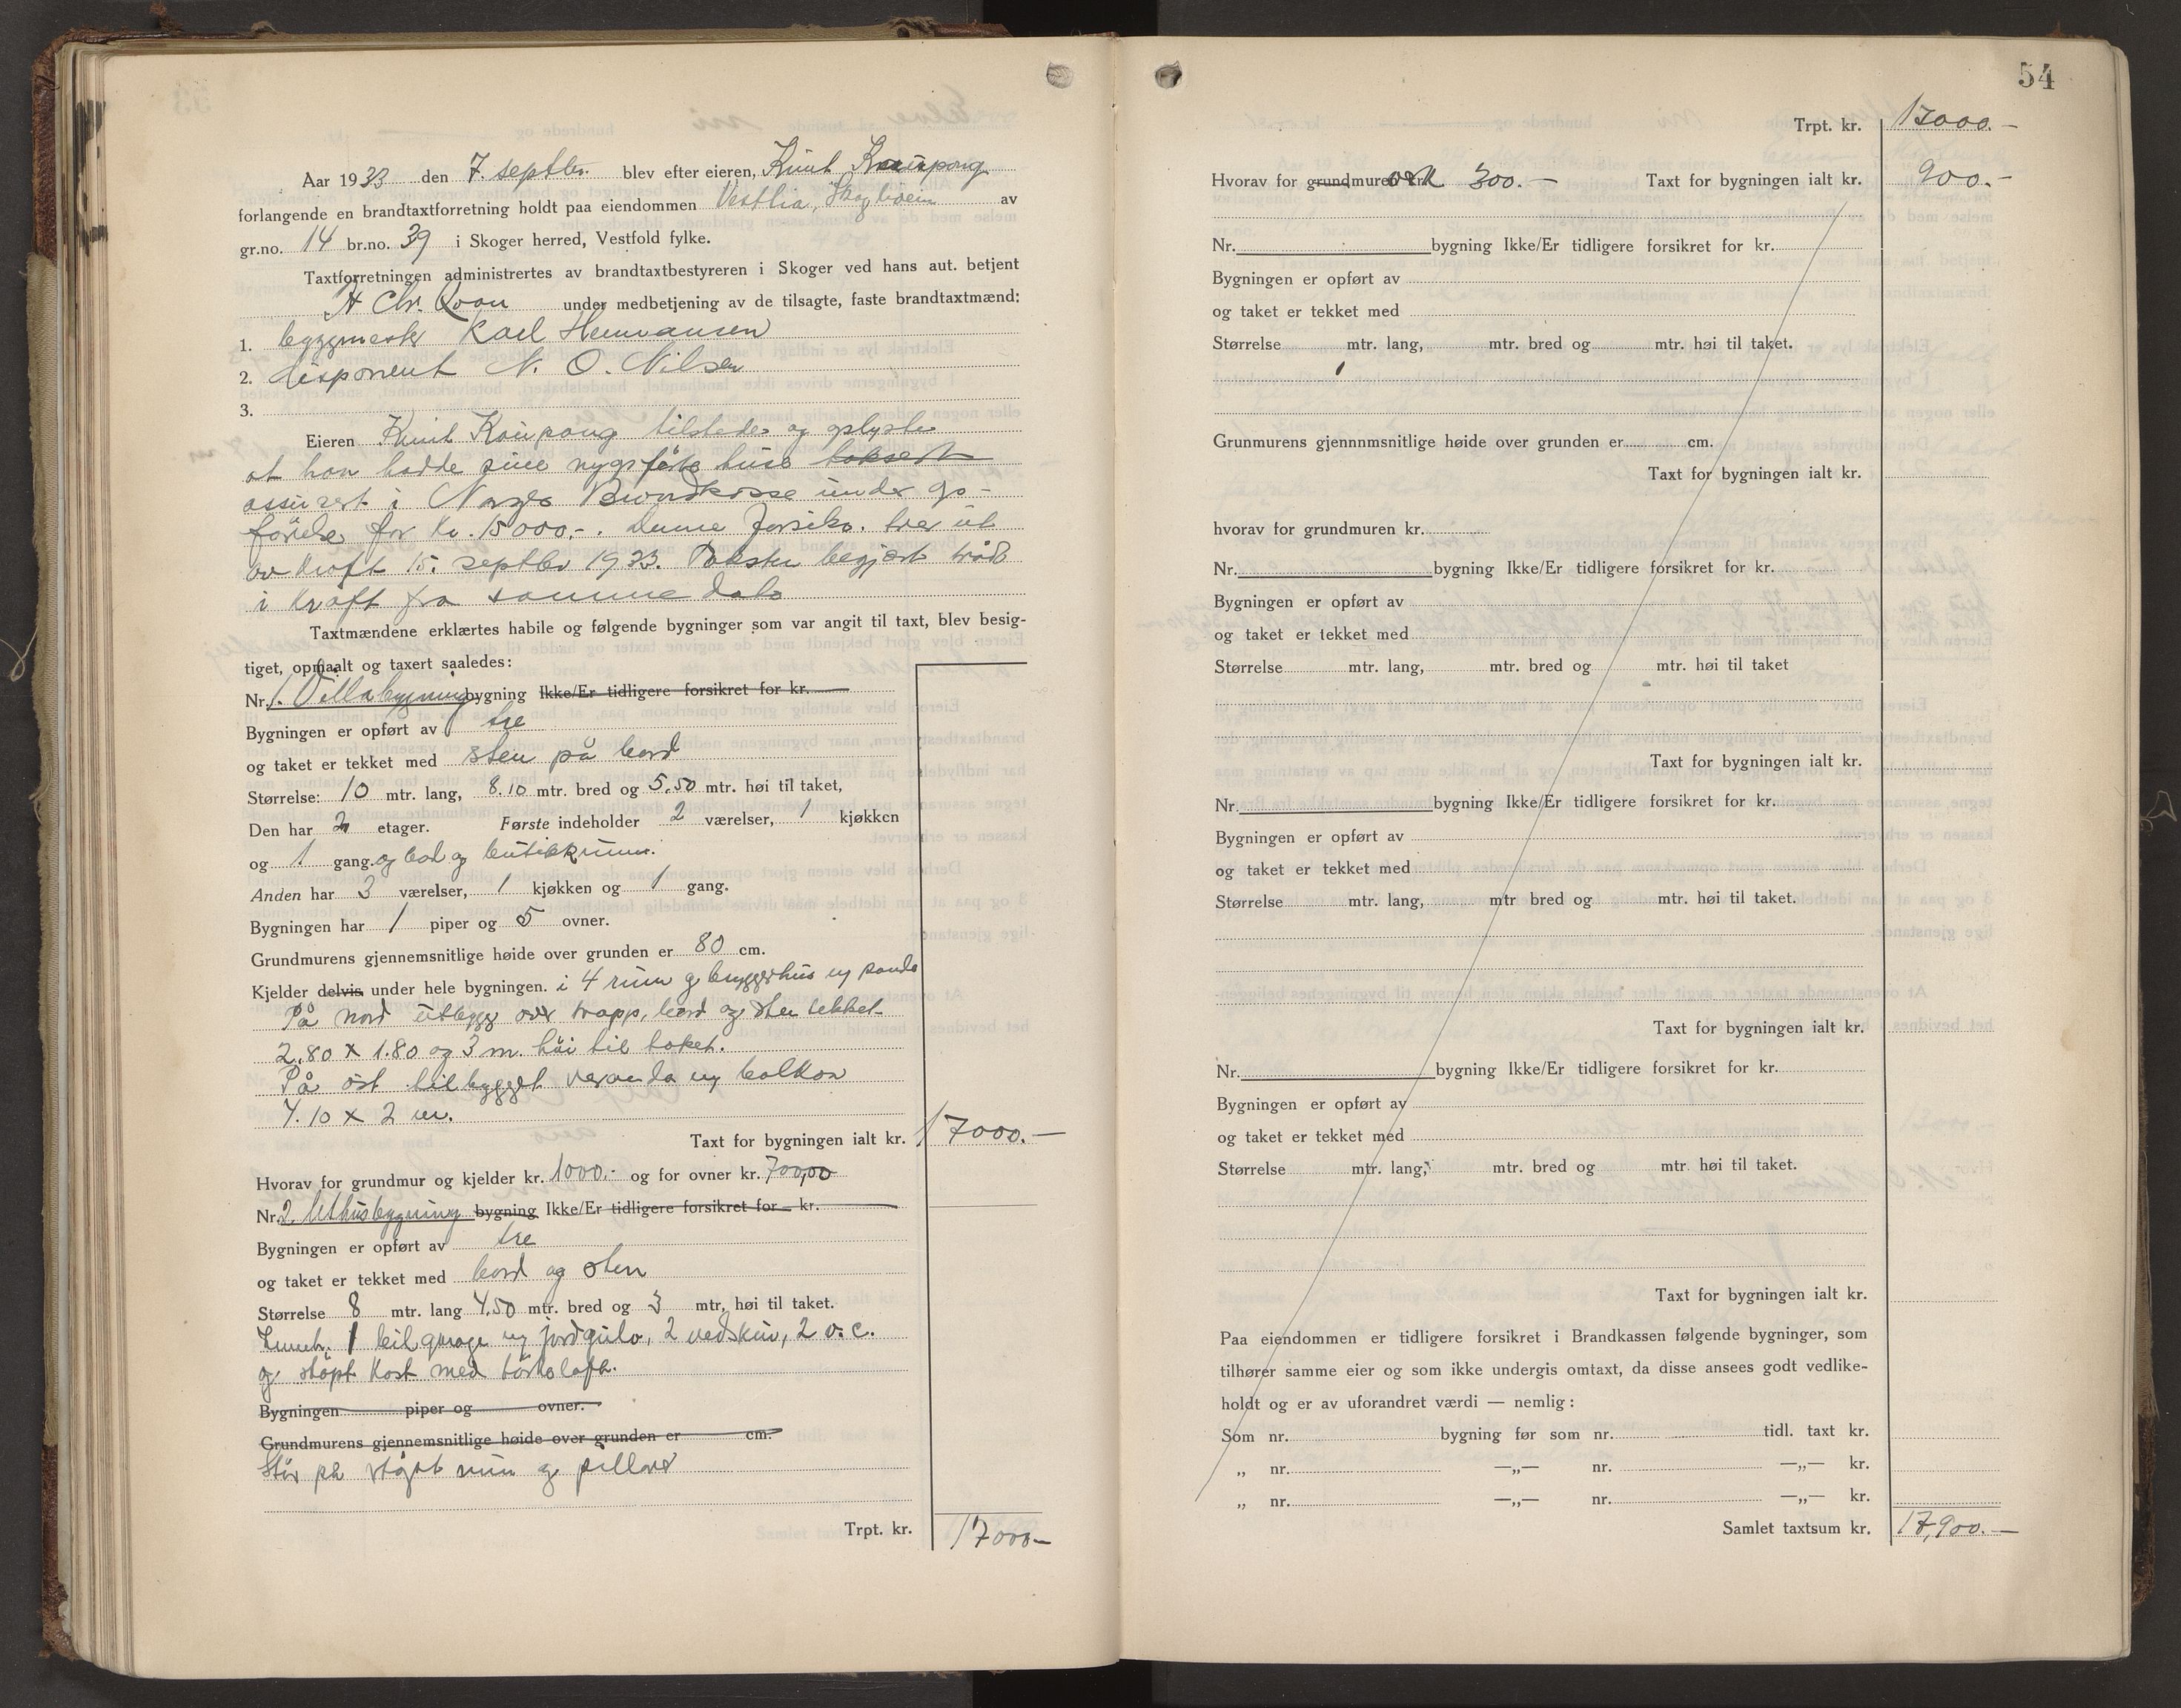 Aar 1933 den 7. septbr. blev efter eieren, Knut
forlangende en brandtaxtforretning holdt paa eiendommen Vestlia, av
gr.no. 14 br.no. 39 i Skoger herred, Vestfold fylke.
Taxtforretningen administrertes av brandtaxtbestyreren i Skoger ved hans aut. betjent
H Chr. under medbetjening av de tilsagte, faste brandtaxtmænd:
1. byggmestr Karl Hermansen
2. disponent N. O. Nilsen
3.
Eieren Knut tilstede og oplyste
at han hadde sine nyopførte huse taksert
assurert i Norges Brandkasse under op-
førelse for kr. 15000,-. Denne forsikr. trer ut
av kraft 15. septbr 1933. Taksten begjært trådt
i kraft fra samme dato
Taxtmændene erklærtes habile og følgende bygninger som var angit til taxt, blev besig-
tiget, opmaalt og taxert saaledes:
Nr. 1. Villabygning bygning Ikke/Er tidligere forsikret for kr.
Bygningen er opført av tre
og taket er tekket med sten på bord
Størrelse: 10 mtr. lang, 8.10 mtr. bred og 5,50 mtr. høi til taket,
Den har 2 etager. Første indeholder 2 værelser, 1 kjøkken
og 1 gang. og bad og butikkrum.
Anden har 3 værelser, 1 kjøkken og 1 gang.
Bygningen har 1 piper og 5 ovner.
Grundmurens gjennemsnitlige høide over grunden er 80 cm.
Kjelder delvis under hele bygningen. i 4 rum og bryggerhus
På nord utbygg over trapp, bord og sten tekket
2.80 x 1.80 og 3 m. høi til taket.
På øst tilbygget veranda og balkon
4.10 x 2 m.
Taxt for bygningen ialt kr. 17000.-
Hvorav for grundmur og kjelder kr. 1000.- og for ovner kr. 700,00
Nr. 2. Uthusbygning bygning Ikke/Er tidligere forsikret for kr.
Bygningen er opført av tre
og taket er tekket med bord og sten
Størrelse 8 mtr. lang 4,50 mtr. bred og 3 mtr. høi til taket.
Inneh. 1 bilgarage jordgulv, 2 vedskur, 2 v.c.
og støpt kast med tørkeloft.
Bygningen piper og ovner.
Grundmurens gjennemsnitlige høide over grunden er cm.
Står på støpt mur og pillarer
Trpt. kr. 17000-
54
Trpt. kr. 17000.-
Hvorav for grundmuren kr. 300.- Taxt for bygningen ialt kr. 900.-
Nr. bygning Ikke/Er tidligere forsikret for kr.
Bygningen er opført av
og taket er tekket med
Størrelse mtr. lang, mtr. bred og mtr. høi til taket.
Grunmurens gjennnmsnitlige høide over grunden er cm.
Taxt for bygningen ialt kr.
hvorav for grundmuren kr.
Nr. bygning Ikke/Er tidligere forsikret for kr.
Bygningen er opført av
og taket er tekket med
Størrelse mtr. lang, mtr. bred og mtr. høi til taket
Taxt for bygningen ialt kr.
Nr. bygning Ikke/Er tidligere forsikret for kr.
Bygningen er opført av
og taket er tekket med
Størrelse mtr. lang, mtr bred og mtr. høi til taket.
Taxt for bygningen ialt kr.
Nr. bygning Ikke/Er tidligere forsikret for kr.
Bygningen er opført av
og taket er tekket med
Størrelse mtr. lang, mtr. bred og mtr. høi til taket.
Taxt for bygningen ialt kr.
Paa eiendommen er tidligere forsikret i Brandkassen følgende bygninger, som
tilhører samme eier og som ikke undergis omtaxt, da disse ansees godt vedlike-
holdt og er av uforandret værdi — nemlig:
Som nr. bygning før som nr. tidl. taxt kr.
„ nr. —„— nr. —„— kr.
„ nr. —„— nr. —„— kr.
Samlet taxtsum kr. 17,900.-